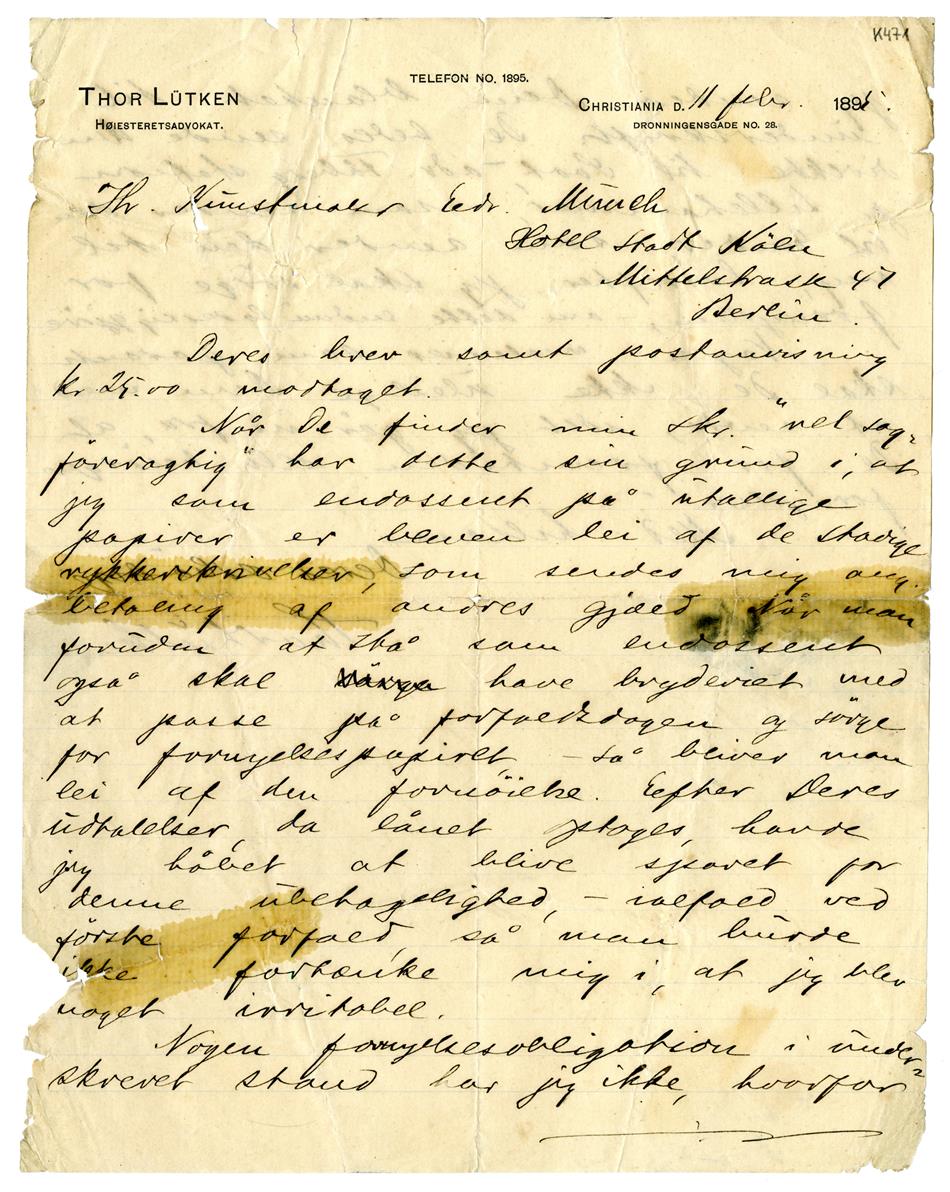 K471
TELEFON NO. 1895.
THOR LÜTKEN
HØIESTERETSADVOKAT.
CHRISTIANIA D. 11 febr. 1895.
DRONNINGENSGADE NO. 28.
Hr. Kunstmaler Edv. Munch
Hotel Stadt Köln
Mittelstrasse 47
Berlin.
Deres brev samt postanvisning
kr 25.00 modtaget.
Når De finder min skr. "vel sag-
föreragtig" har dette sin grund i, at
jeg som endossent på utallige
papirer er bleven lei af de stadige
rykkerskrivelser, som sendes mig ang.
betaling af andres gjæld. Når man
foruden at stå som endossent
også skal have bryderiet med
at passe på forfaldsdagen og sörge
for fornyelsespapiret – så bliver man
lei af den fornöielse. Eefter Deres
udtalelser, da lånet optoges, havde
jeg håbet at blive sparet for
denne ubehagelighed, – ialfald ved
förste forfald, så man burde
ikke fortænke mig i, at jeg blev
noget irritabel.
Nogen fornyelsesobligation i under-
skrevet stand har jeg ikke, hvorfor